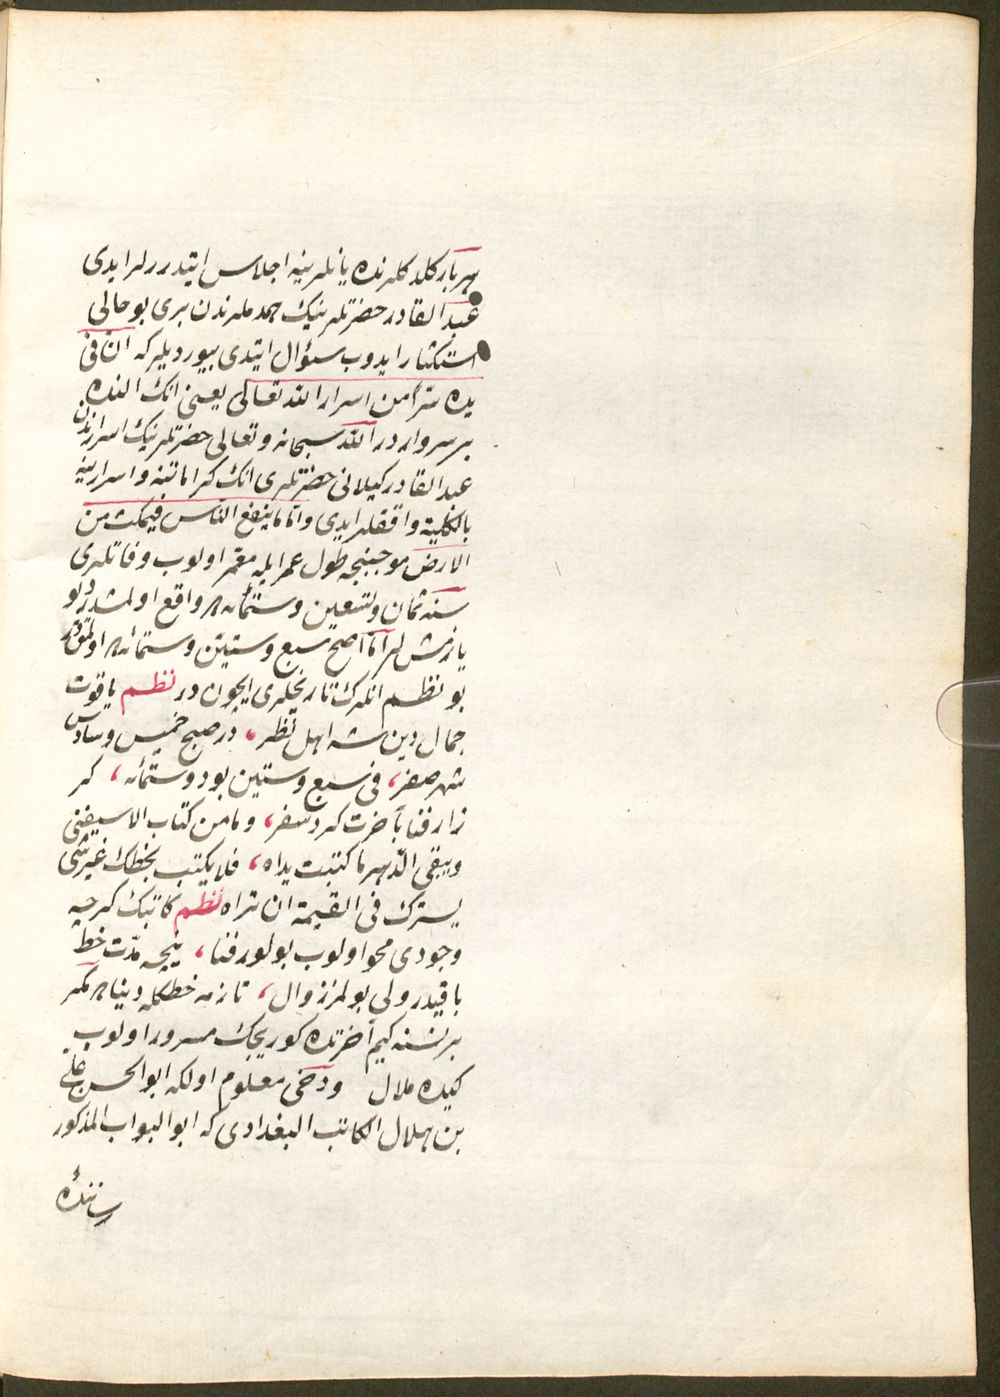 هر بار كلدكلرنده يانلرينه اجلاس ايتدررلر ايدى
عبد القادر حضرتلرينك همدملرندن برى بو حالى
استكثار ايدوب سؤال ايتدى بيورديلر كه ان فى
يده سرّا من اسرار الله تعالى يعنى انك النده
بر سر واردر الله سبحانه وتعالى حضرتلرينك اسرارندن
عبد القادر كيلانى حضرتلرى انك كراماتنه و اسرارينه
بالكلية واقفلر ايدى واما ما ينفع الناس فيمكث من
الارض موجبنجه طول عمر ايله معمر اولوب وفاتلرى
سنه ثمان وتسعين وستمأنه ده واقع اولمشدر ديو
يازمش لر اما اصح سبع وستين وستمائه ده اولمقدر
بو نظم انلرك تاريخلرى ايچون در نظم ياقوت
جمال دين شه اهل نظر ، در صبح خميس وسادس
شهر صفر ، فى سبع وستين بود وستمأنه ، كز
زار فنا بآخرت كرد سفر ، وما من كتاب الا سيفنى
ويبقى الدّهر ما كتبت يداه ، فلا يكتب بخطك غير شئ
يسترك فى القيمة ان تراه نظم كاتبك كرچه
وجودى محو اولوب بولور فنا ، نيچه مدّت خط
باقيدر ولى بولمز زوال ، يازمه خطكله دنياده مكر
بر نسنه كيم آخرتده كوريجك مسرور اولوب
كيده ملال ودخى معلوم اولكه ابو الحسن على
بن هلال الكاتب البغدادى كه ابو البواب المذكور